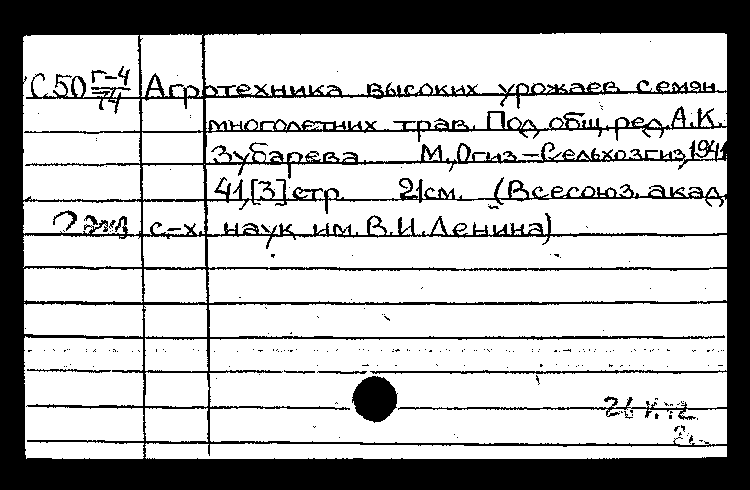 С50 Г-4/74 Агротехника высоких урожаев семян
многолетних трав. Под общ. ред. А.К.
Зубарева. М., Огиз-Сельхозгиз, 1941
41,[3] стр. 21 см. (Всесоюз. акад.
2 экз. с.-х. наук им. В.И. Ленина)